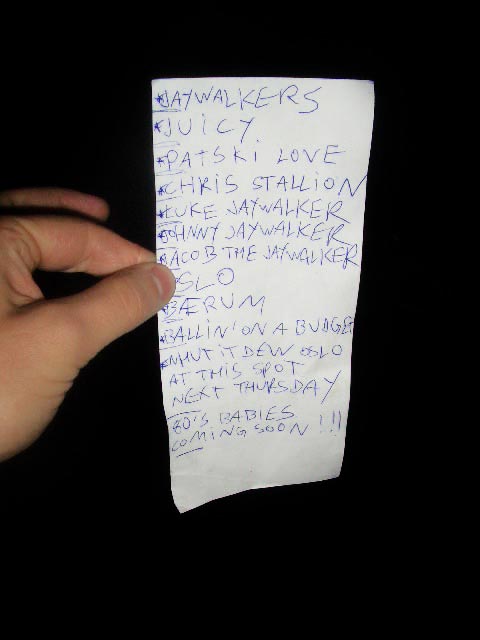 *JAYWALKERS
*JUICY
*PATSKI LOVE
*CHRIS STALLION
*LUKE JAYWALKER
*JOHNNY JAYWALKER
*JACOB THE JAYWALKER
OSLO
BÆRUM
*BALLIN' ON A BUDGE
*NHUT iT DEW OSLO
AT THIS SPOT
NEXT THURSDAY
80'S BABIES
COMING SOON !!!